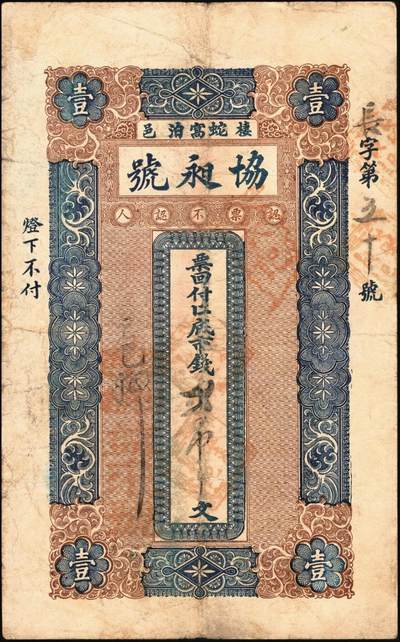 壹
壹
棲蛇窩泊邑
協昶號
認票不認人
長字第五十號
票回付口底下錢
文
燈下不付
壹
壹